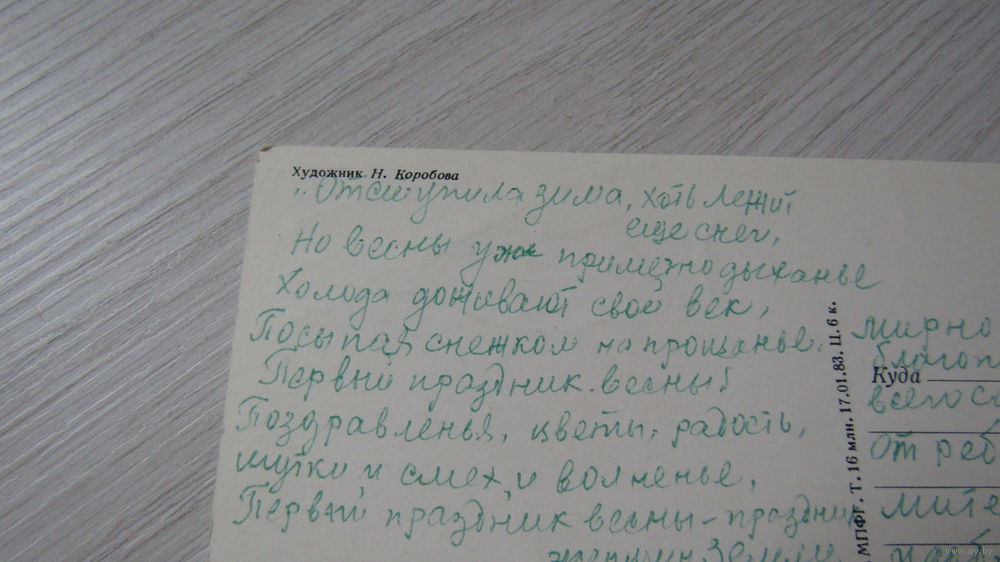 Художник Н. Коробова
„Отступила зима, хоть лежит
еще снег,
Но весны уже приметно дыханье
Холода доживают свой век,
Посыпая снежком на прощанье.
Первый праздник весны!
Поздравленья, цветы, радость,
шутки и смех, и волненье,
Первый праздник весны - праздник
женщин Земли
МПФГ. Т. 16 млн. 17.01.83. Ц. 6 к.
мирно
благоп
Куда
всего
от реб
мите
www.ay.by